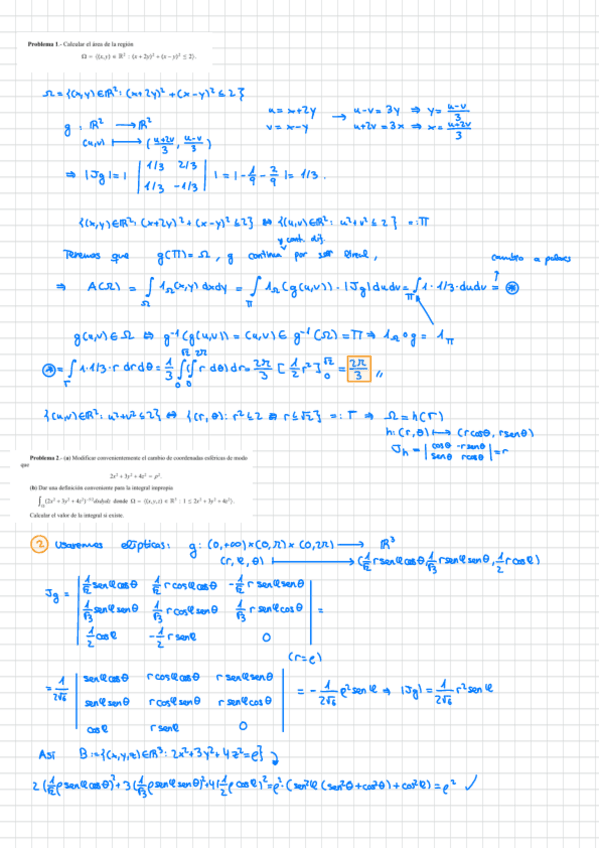 Problema 1.- Calcular el área de la región
Ω = {(x, y) ∈ ℝ² : (x + 2y)² + (x − y)² ≤ 2}.
Ω = {(x,y) ∈ ℝ² : (x+2y)² + (x-y)² ≤ 2}
u = x+2y → u-v = 3y ⇒ y = (u-v)/3
v = x-y u+2v = 3x ⇒ x = (u+2v)/3
g : ℝ² → ℝ²
(u,v) ↦ ((u+2v)/3, (u-v)/3)
⇒ |Jg| = | |1/3 2/3| | = |-1/9 - 2/9| = 1/3.
|1/3 -1/3|
{(x,y) ∈ ℝ² : (x+2y)² + (x-y)² ≤ 2} ⇔ {(u,v) ∈ ℝ² : u²+v² ≤ 2} =: Π
y cont. dif.
Tenemos que g(Π) = Ω, g continua por ser lineal,
cambio a polares
⇒ A(Ω) = ∫_Ω 1_Ω(x,y) dxdy = ∫_Π 1_Ω(g(u,v)) · |Jg| dudv = ∫_Π 1·1/3·dudv = ⊛
g(u,v) ∈ Ω ⇔ g⁻¹(g(u,v)) = (u,v) ∈ g⁻¹(Ω) = Π ⇒ 1_Ω∘g = 1_Π
⊛ = ∫_Γ 1·1/3·r drdθ = 1/3 ∫_0^√2 (∫_0^2π r dθ) dr = 2π/3 [1/2 r²]_0^√2 = 2π/3 //
{(u,v) ∈ ℝ² : u²+v² ≤ 2} ⇔ {(r,θ) : r² ≤ 2 ⇔ r ≤ √2} =: Γ ⇒ Ω = h(Γ)
h: (r,θ) ↦ (r cosθ, r senθ)
Jh = |cosθ -r senθ| = r
|senθ r cosθ|
Problema 2.- (a) Modificar convenientemente el cambio de coordenadas esféricas de modo
que
2x² + 3y² + 4z² = ρ².
(b) Dar una definición conveniente para la integral impropia
donde Ω = {(x, y, z) ∈ ℝ³ : 1 ≤ 2x² + 3y² + 4z²}.
Calcular el valor de la integral si existe.
2 Usaremos elípticas: g: (0,+∞)×(0,π)×(0,2π) → ℝ³
(r,φ,θ) ↦ (1/√2 r senφ cosθ, 1/√3 r senφ senθ, 1/2 r cosφ)
Jg = |1/√2 senφ cosθ 1/√2 r cosφ cosθ -1/√2 r senφ senθ|
|1/√3 senφ senθ 1/√3 r cosφ senθ 1/√3 r senφ cosθ| =
|1/2 cosφ -1/2 r senφ 0|
(r=ρ)
= 1/(2√6) |senφ cosθ r cosφ cosθ r senφ senθ|
|senφ senθ r cosφ senθ r senφ cosθ| = - 1/(2√6) ρ² senφ ⇒ |Jg| = 1/(2√6) r² senφ
|cosφ r senφ 0|
Así B := {(x,y,z) ∈ ℝ³ : 2x²+3y²+4z² = ρ}
2(1/√2 ρ senφ cosθ)² + 3(1/√3 ρ senφ senθ)² + 4(1/2 ρ cosφ)² = ρ²·(sen²φ (sen²θ + cos²θ) + cos²φ) = ρ² ✓